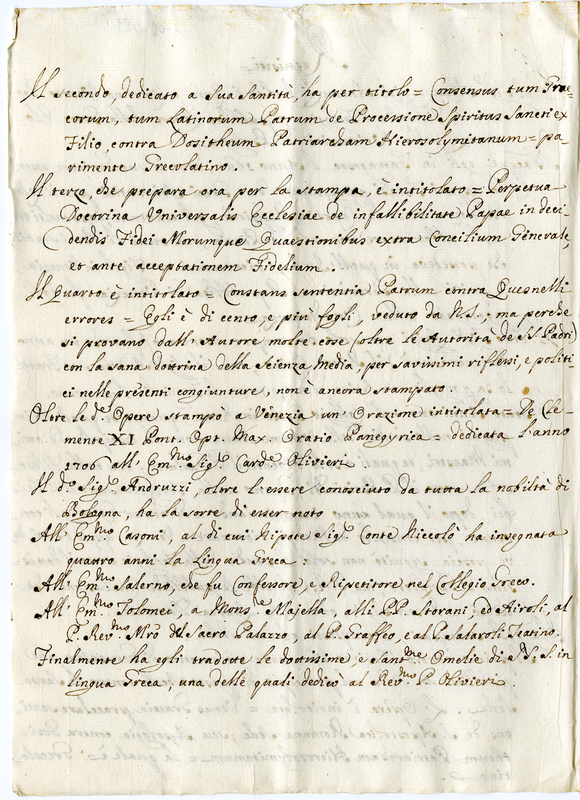 Il secondo, dedicato a Sua Santità, ha per titolo = Consensus tum Grae-
corum, tum Latinorum Patrum de Processione Spiritus Sancti ex
Filio, contra Dositheum Patriarcham Hierosolymitanum = pa-
rimente Grecolatino.
Il terzo, che prepara ora per la stampa, è intitolato = Perpetua
Doctrina Universalis Ecclesiae de infallibilitate Papae in deci-
dendis Fidei Morumque Quaestionibus extra Concilium Generale,
et ante acceptationem Fidelium.
Il quarto è intitolato = Constans sententia Patrum contra Quesnelli
errores = Egli è di cento, e più fogli, veduto da N.S.; ma perche
si provano dall' Autore molte cose (oltre le Autorità de SS. Padri)
con la sana dottrina della Scienza Media, per savissimi riflessi, e politi-
ci nelle presenti congiunture, non è ancora stampato.
Oltre le d.e Opere stampò a Venezia un' Orazione intitolata = De Cle-
mente XI Pont. Opt. Max. Oratio Panegyrica = dedicata l'anno
1706 all' Em.mo Sig.r Card.e Olivieri
Il d.o Sig.r Andruzzi, oltre l'essere conosciuto da tutta la nobiltà di
Bologna, ha la sorte di esser noto
All' Em.mo Casoni, al di cui Nipote Sig.r Conte Niccolò ha insegnata
quattro anni la Lingua Greca:
All' Em.mo Salerno, che fu Confessore, e Ripetitore nel Collegio Greco.
All' Em.mo Tolomei, a Mons.re Majella, alli PP. Storani, ed Airoli, al
P. Rev.mo Mro del Sacro Palazzo, al P. Graffeo, e al P. Salaroli Teatino.
Finalmente ha egli tradotte le dottissime, e Sant.me Omelie di N.S. in
lingua Greca, una delle quali dedicò al Rev.mo P. Olivieri.